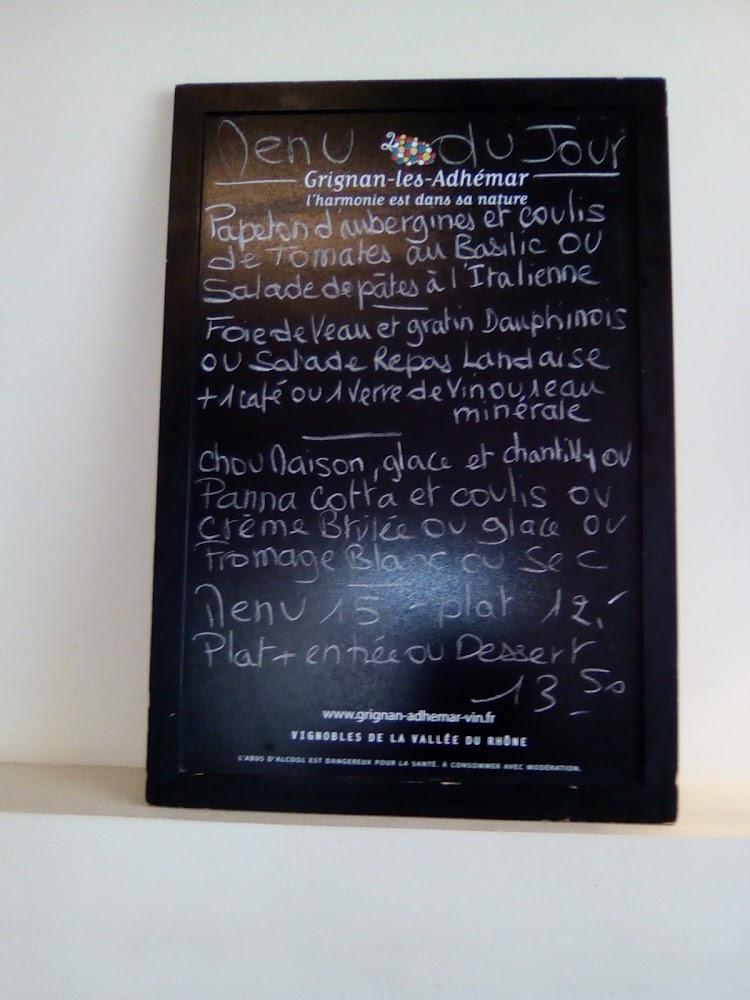 Menu du Jour
Grignan-les-Adhémar
l'harmonie est dans sa nature
Papeton d'aubergines et coulis
de Tomates au Basilic ou
Salade de pâtes à l'Italienne
Foie de Veau et gratin Dauphinois
ou Salade Repas Landaise
+ 1 café ou 1 Verre de Vin ou 1 eau
minérale
Chou Maison, glace et chantilly ou
Panna Cotta et coulis ou
Crème Brûlée ou glace ou
Fromage Blanc ou Sec
Menu 15 - plat 12,-
Plat + entrée ou Dessert
13,50
www.grignan-adhemar-vin.fr
VIGNOBLES DE LA VALLÉE DU RHÔNE
L'ABUS D'ALCOOL EST DANGEREUX POUR LA SANTÉ. À CONSOMMER AVEC MODÉRATION.